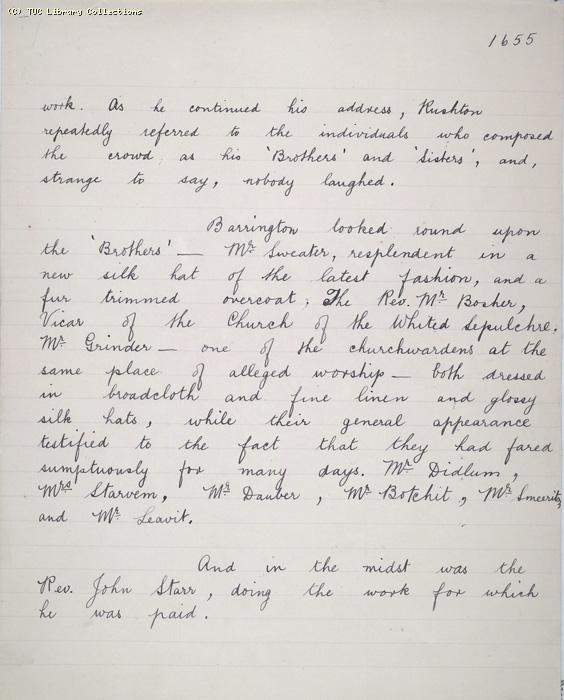 (C) TUC Library Collections
1655
work. As he continued his address, Rushton
repeatedly referred to the individuals who composed
the crowd as his 'Brothers' and 'Sisters', and,
strange to say, nobody laughed.
Barrington looked round upon
the 'Brothers' — Mr Sweater, resplendent in a
new silk hat of the latest fashion, and a
fur trimmed overcoat; The Rev. Mr Bosher,
Vicar of the Church of the Whited Sepulchre.
Mr Grinder — one of the churchwardens at the
same place of alleged worship — both dressed
in broadcloth and fine linen and glossy
silk hats, while their general appearance
testified to the fact that they had fared
sumptuously for many days. Mr Didlum,
Mrs Starvem, Mr Dauber, Mr Botchit, Mr Smeeriton,
and Mr Leavit.
And in the midst was the
Rev. John Starr, doing the work for which
he was paid.